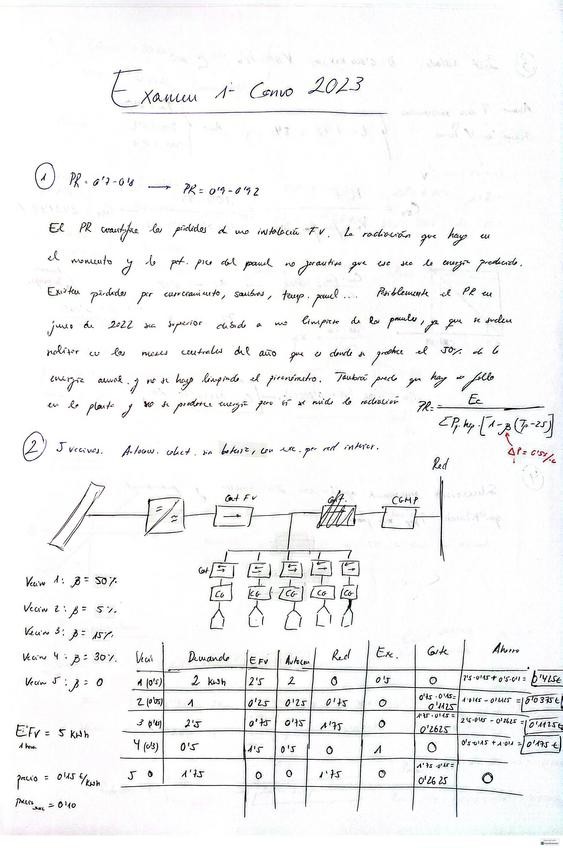 Examen 1ª Convo 2023
① PR = 0'7-0'8 → PR = 0'9-0'92
El PR cuantifica las pérdidas d una instalación FV. La radiación que haya en
el momento y la pot. pico del panel no garantiza que esa sea la energía producida.
Existen pérdidas por conexionamiento, sombras, temp. panel ... Posiblemente el PR en
junio de 2022 sea superior debido a una limpieza de los paneles, ya que se suelen
realizar en los meses centrales del año que es donde se produce el 50% de la
energía anual. y no se haya limpiado el piranómetro. También puede que haya un fallo
en la planta y no se produzca energía pero si se mide la radiación
PR = Ec / ΣPp·hsp·[1-β(Tp-25)]
ΔP = 0'5%/ºC
② 5 vecinos. Autocon. colect. sin batería, con exc. por red interior.
Red
Cont FV
CGMP
Cont
CG CG CG CG CG
Vecino 1: β = 50%
Vecino 2: β = 5%
Vecino 3: β = 15%
Vecino 4: β = 30%
Vecino 5: β = 0
EFV = 5 kWh
1 hora
precio = 0'15 €/kWh
precio exc = 0'10
Veci Demanda EFV Autocon Red Exc. Coste Ahorro
1 (0'5) 2 kWh 2'5 2 0 0'5 0 0'425€
2 (0'05) 1 0'25 0'25 0'75 0 0'75·0'15= 0'1125 1·0'15-0'1125= 0'0375€
3 2'5 0'75 0'75 1'75 0 1'75·0'15= 0'2625 0'1125€
4 (0'3) 0'5 1'5 0'5 0 1 0 0'175€
5 0 1'75 0 0 1'75 0 1'75·0'15= 0'2625 0